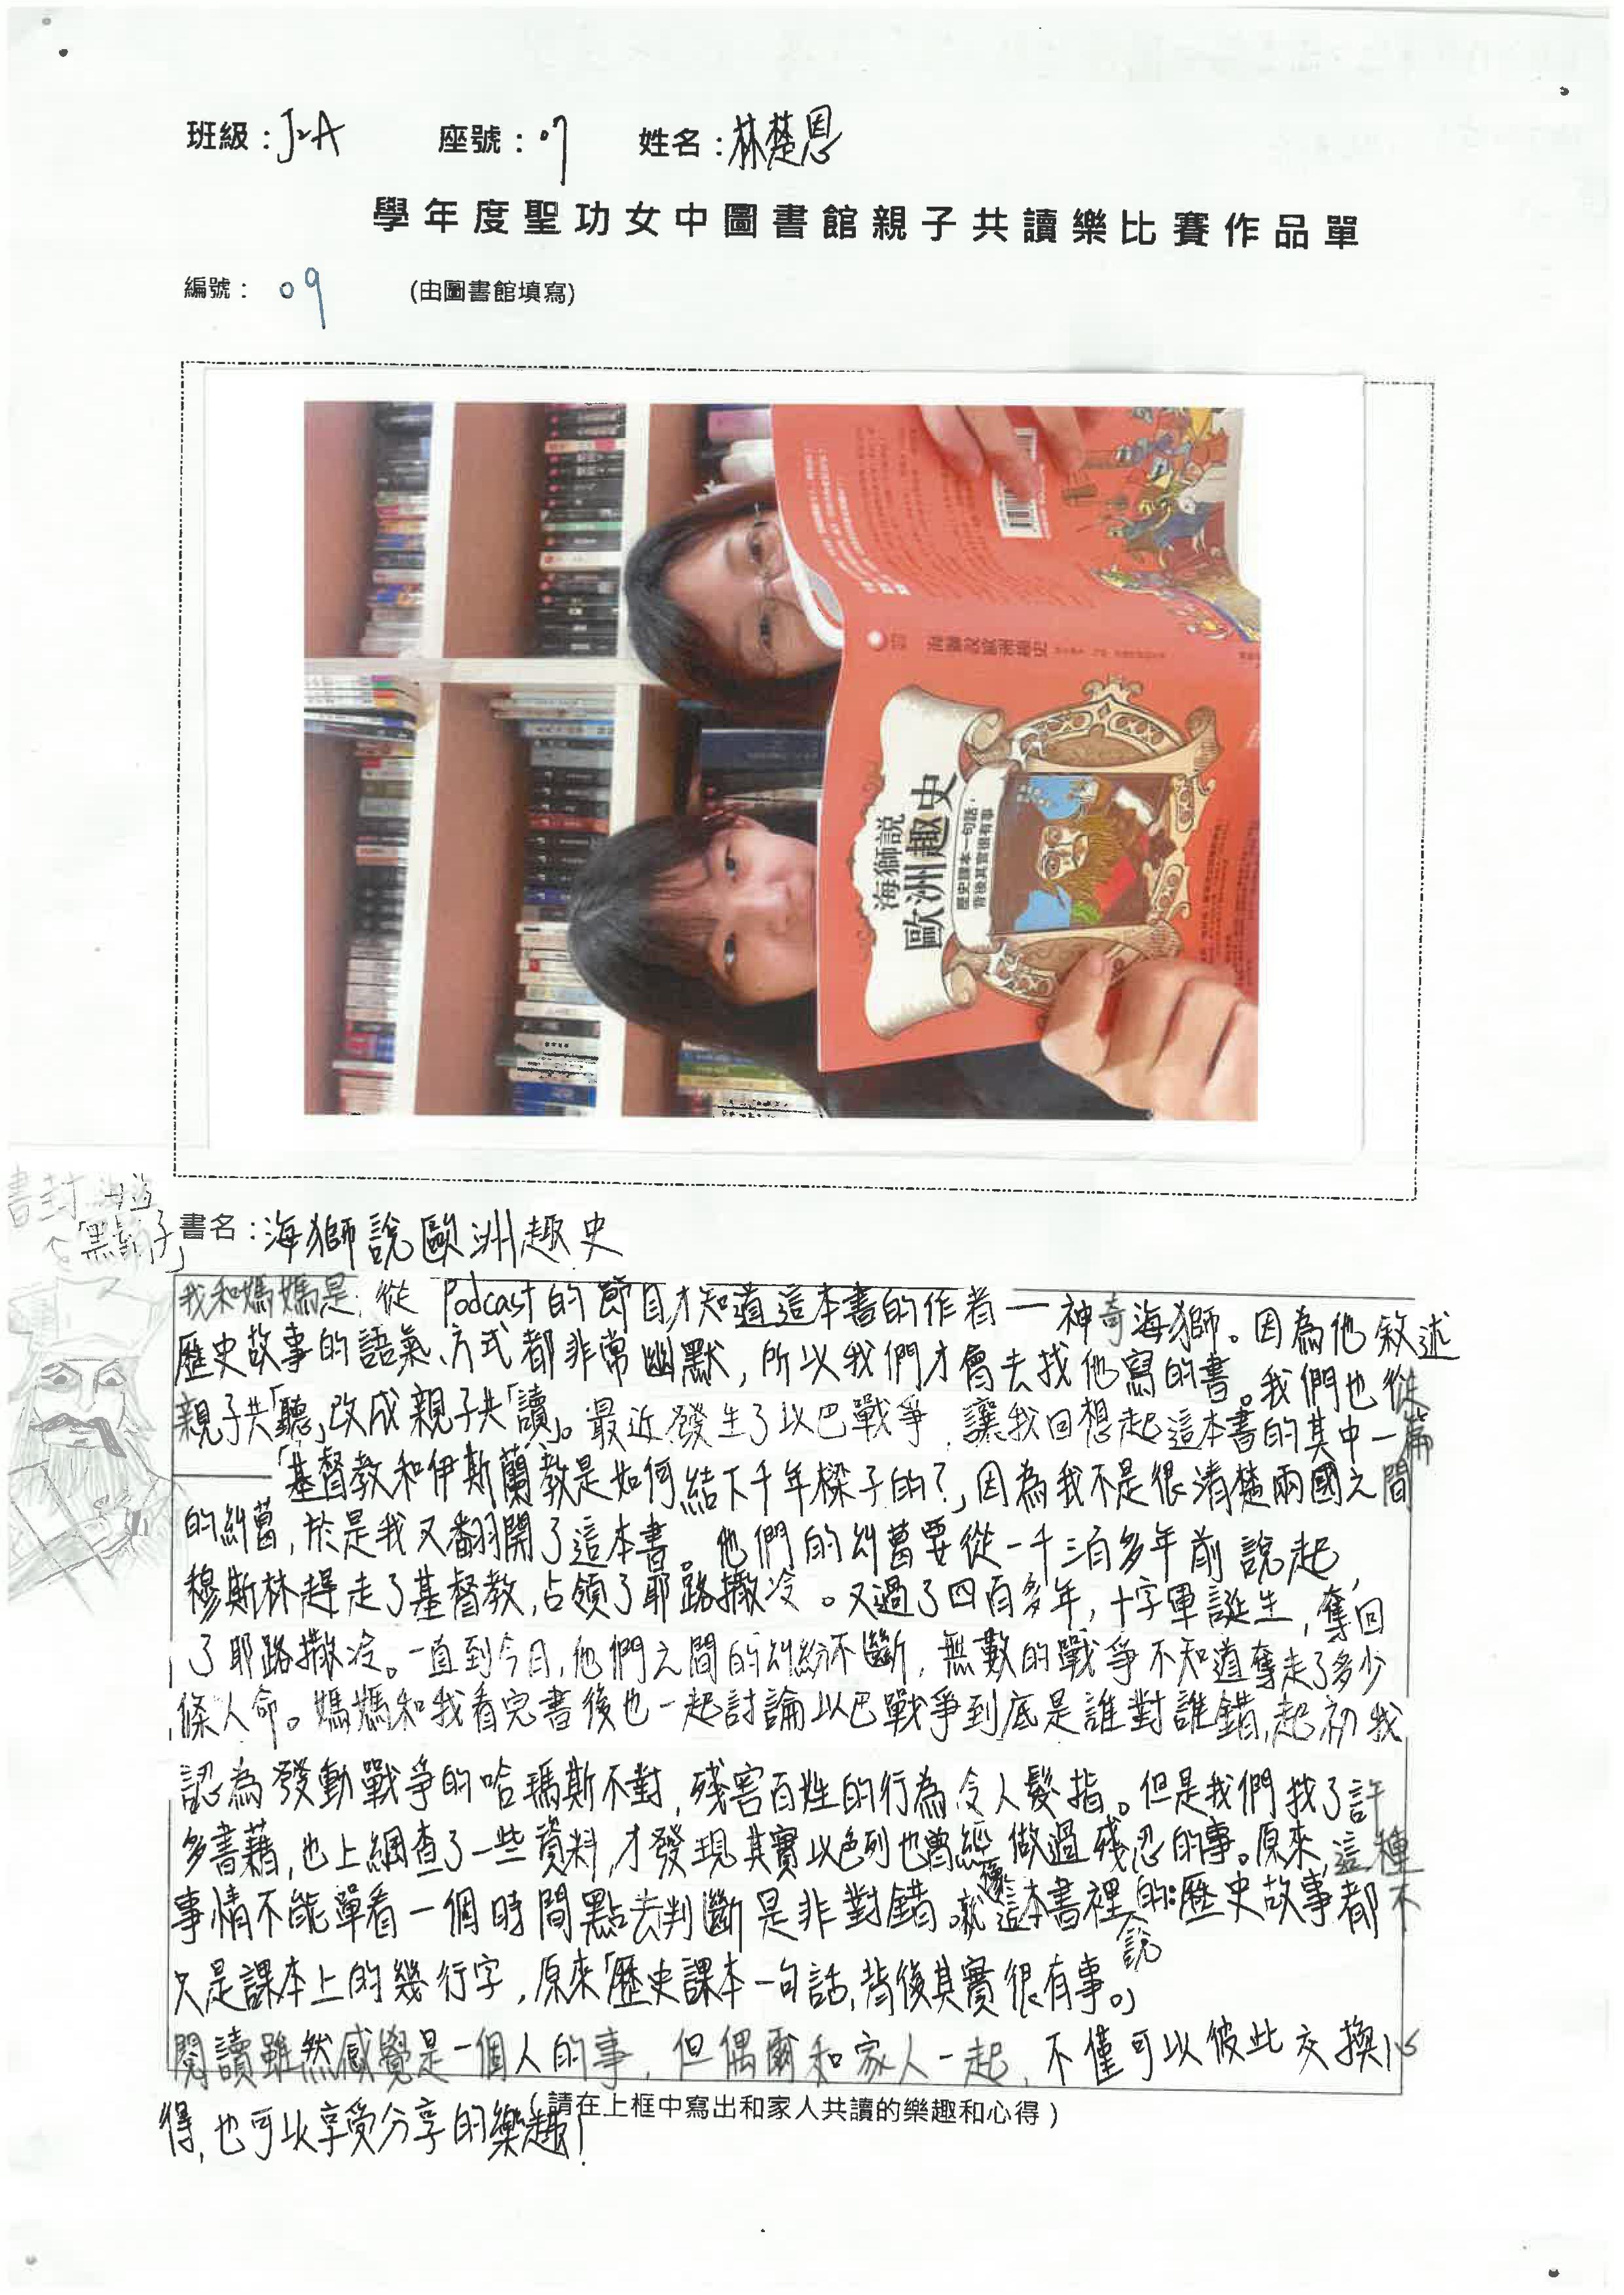 班級：J2A 座號：07 姓名：林楚恩
學年度聖功女中圖書館親子共讀樂比賽作品單
編號： 09 (由圖書館填寫)
海獅說歐洲趣史
海獅說
歐洲趣史
歷史課本一句話，
背後其實很有事
書封
「黑鬍子」
書名：海獅說歐洲趣史
我和媽媽是從Podcast的節目才知道這本書的作者—神奇海獅。因為他敘述
歷史故事的語氣、方式都非常幽默，所以我們才會去找他寫的書。我們也從
親子共「聽」改成親子共「讀」。最近發生了以巴戰爭，讓我回想起這本書的其中一篇
——「基督教和伊斯蘭教是如何結下千年樑子的？」因為我不是很清楚兩國之間
的糾葛，於是我又翻開了這本書。他們的糾葛要從一千三百多年前說起，
穆斯林趕走了基督教，占領了耶路撒冷。又過了四百多年，十字軍誕生，奪回
了耶路撒冷。一直到今日，他們之間的糾紛不斷，無數的戰爭不知道奪走了多少
條人命。媽媽和我看完書後也一起討論以巴戰爭到底是誰對誰錯，起初我
認為發動戰爭的哈瑪斯不對，殘害百姓的行為令人髮指。但是我們找了許
多書藉，也上網查了一些資料，才發現其實以色列也曾經做過殘忍的事。原來，這種
事情不能單看一個時間點去判斷是非對錯。就像這本書裡說的：歷史故事都不
只是課本上的幾行字，原來「歷史課本一句話，背後其實很有事。」
閱讀雖然感覺是一個人的事，但偶爾和家人一起，不僅可以彼此交換心
得，也可以享受分享的樂趣！
(請在上框中寫出和家人共讀的樂趣和心得)